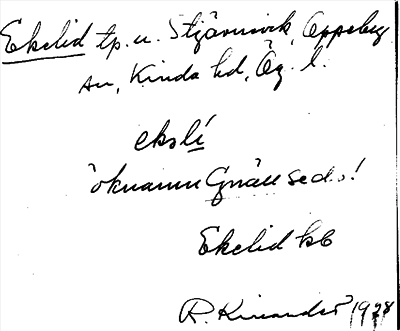 Ekelid tp. u. Stjärnevik, Oppeby
sn, Kinda hd, Ög. l.
ekslí
öknamn Gnäll
Ekelid kb
R. Kinander 1928